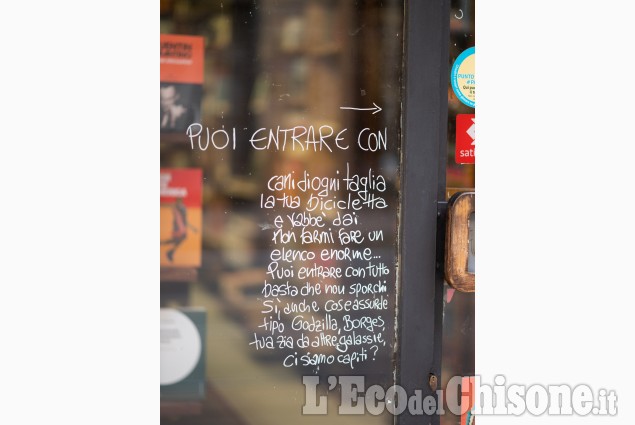 PUOI ENTRARE CON
cani di ogni taglia
la tua bicicletta
e vabbè dai
non farmi fare un
elenco enorme...
Puoi entrare con tutto
basta che non sporchi
Sì, anche cose assurde
tipo Godzilla, Borges,
tua zia da altre galassie,
ci siamo capiti?
PUNTO
sati
L'EcodelChisone.it